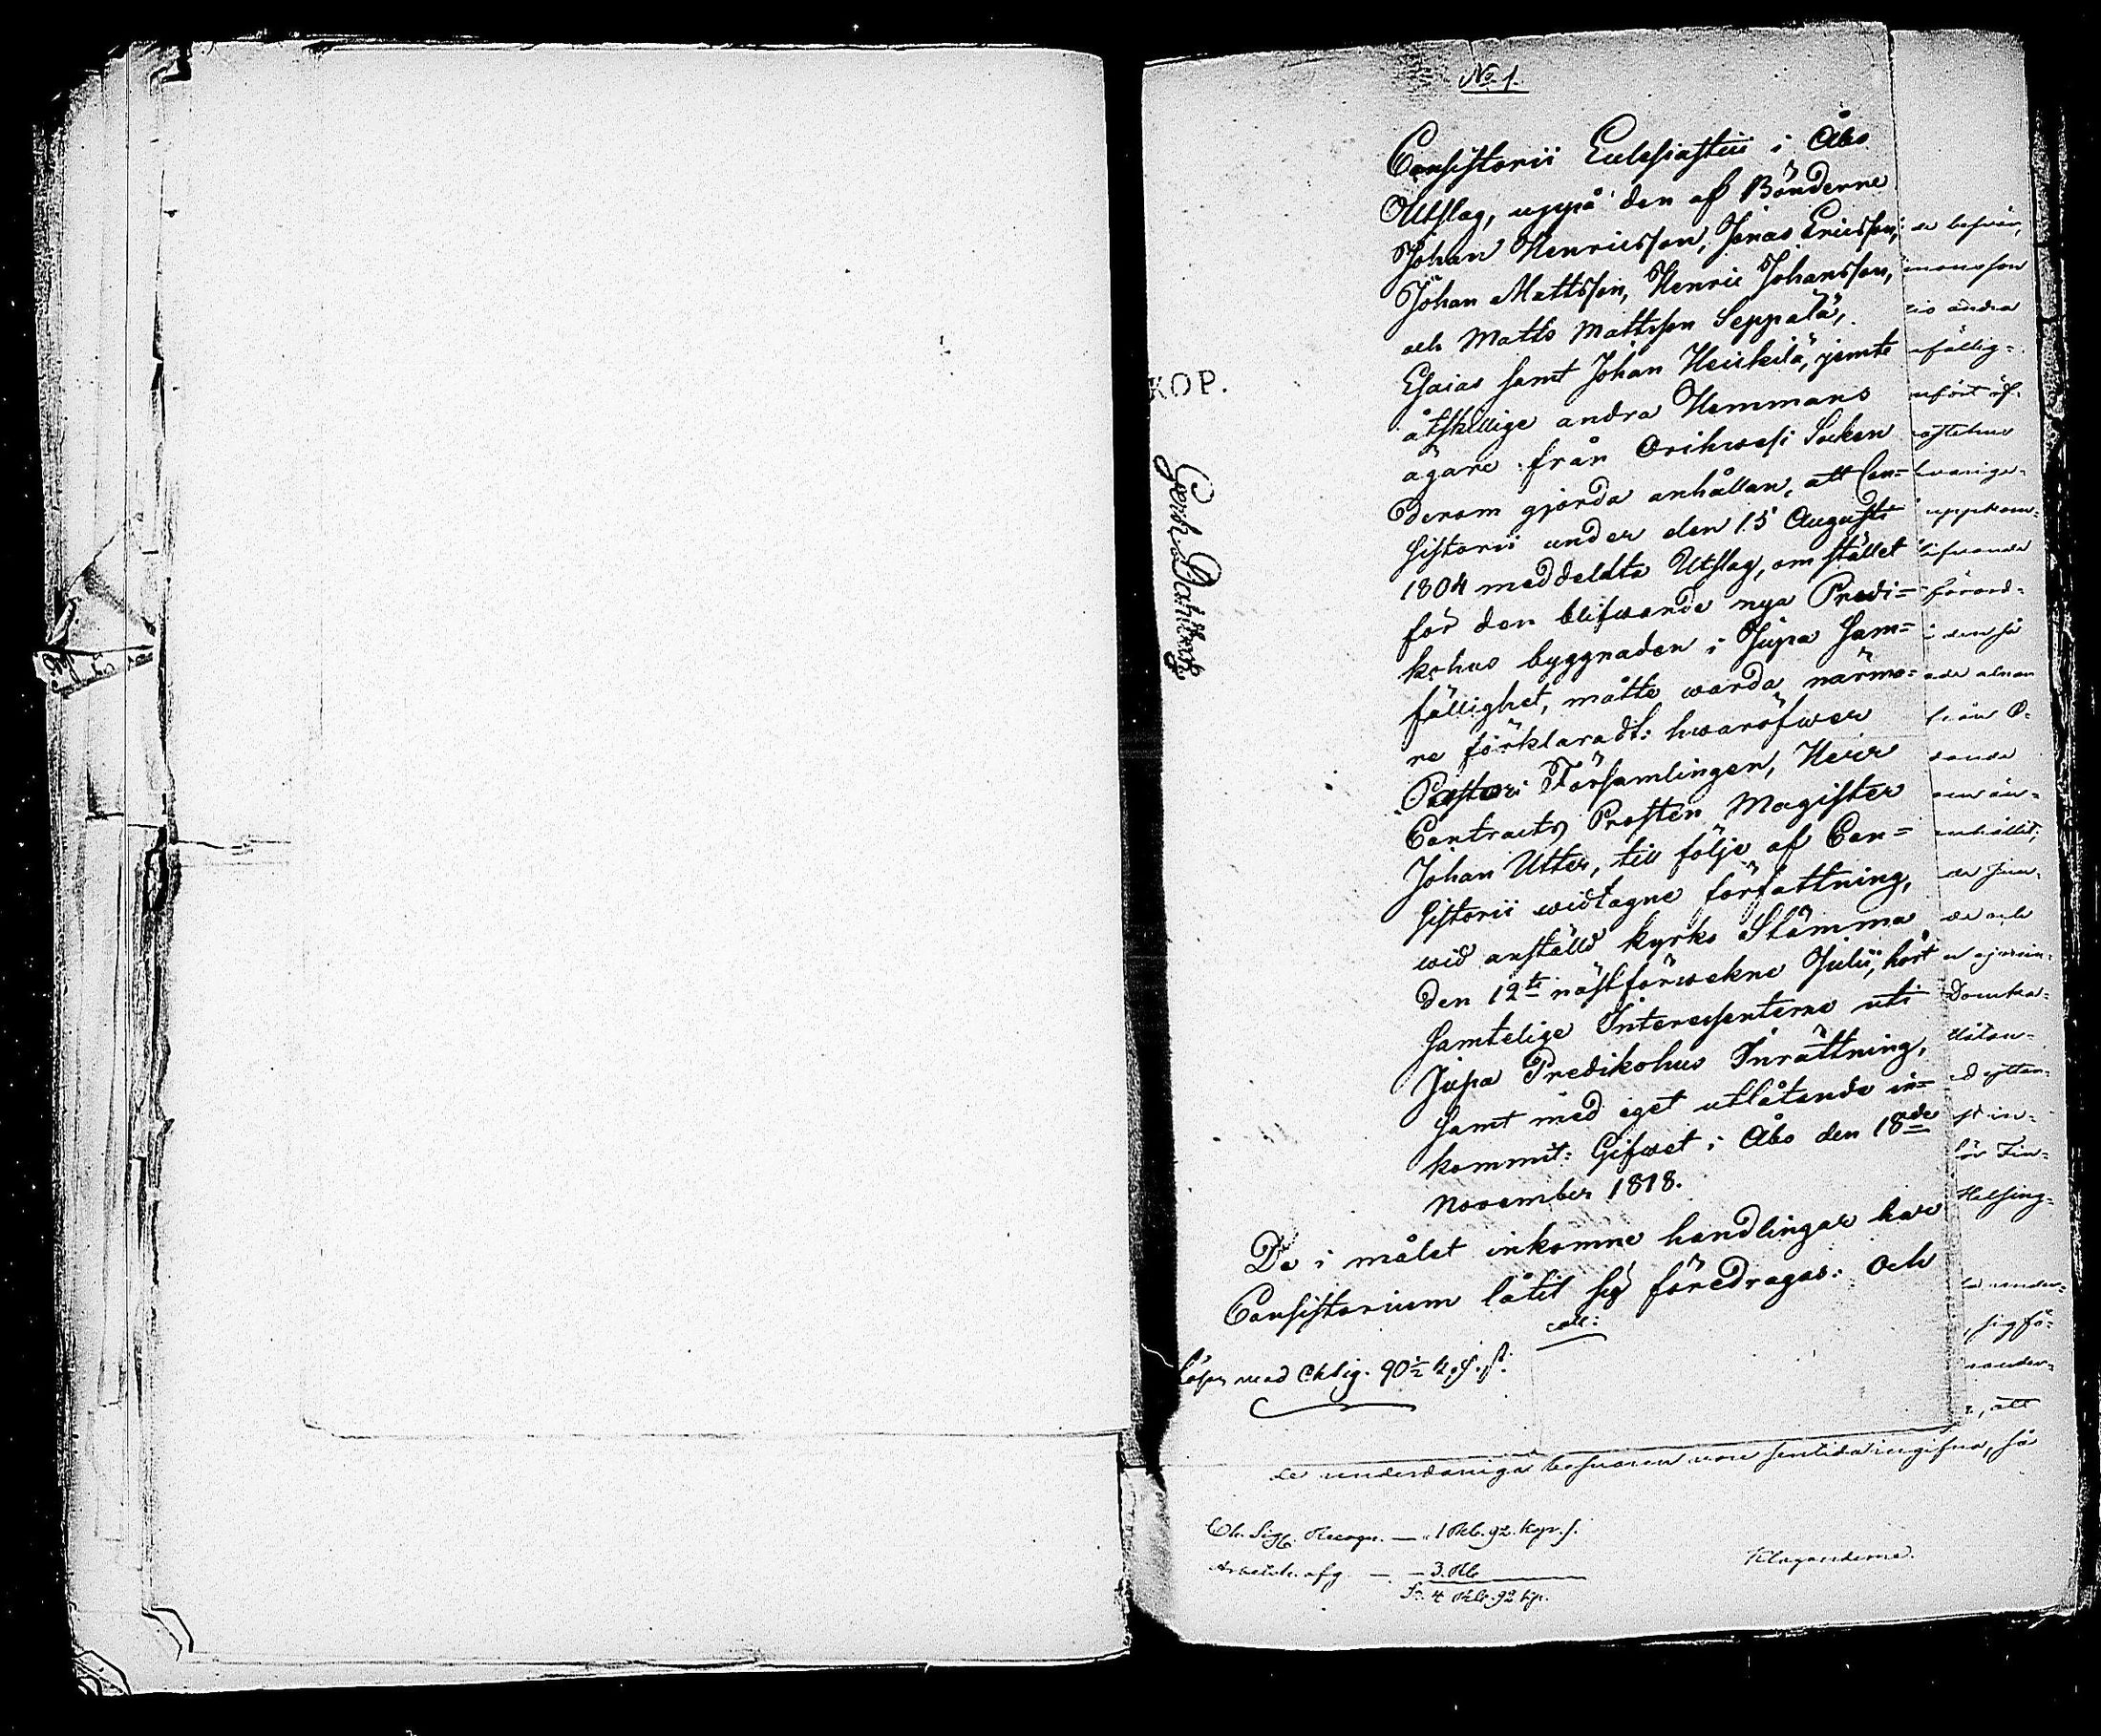 No 1.
Consistorii Ecclesiastici i Åbo
Utslag, uppå den af Bönderne
Johan Henricsson, Jonas Ericsson,
Johan Mattsson, Henric Johansson,
och Matts Mattsson Seppälä,
Esaias samt Johan Heickilä, jemte
åtskillige andra Hemmans
ägare från Orihwesi Soken
derom gjorda anhållan, att Con=
sistorii under den 15 Augusti
1804 meddeldta Utslag, om stället
för den blifwande nya Predi=
kohus byggnaden i Jupa Sam=
fällighet, måtte warda närma=
re förklaradt: hwaröfwer
Pastor i Församlingen, Herr
Contracts Prosten Magister
Johan Utter, till följe af Con=
sistorii widtagne författning,
wid anställd kyrko Stämma
den 12te nästförwekne Julii, hört
samtelige Interessenterne uti
Jupa Predikohus Inrättning,
samt med eget utlåtande in=
kommit: Gifwet i Åbo den 18de
November 1818.
De i målet inkomne handlingar har
Consistorium låtit sig föredragas: och
löses med Chsig. 90½ kop. S.
KOP.
de underdåniga besvären non sentida ingifna, så
Ch. Sig. Recogn. — 1 Rbl. 92. kop. s.
— 3. Rb
Sa. 4 Rbl. 92 kp.
Klaganderne.
de besvär,
monsson
andra
fällig=
uppkom=
lifvande
förord=
i den så
från O=
anhållit,
Domka=
ör Fin=
Helsing=
, sig fö=
, att